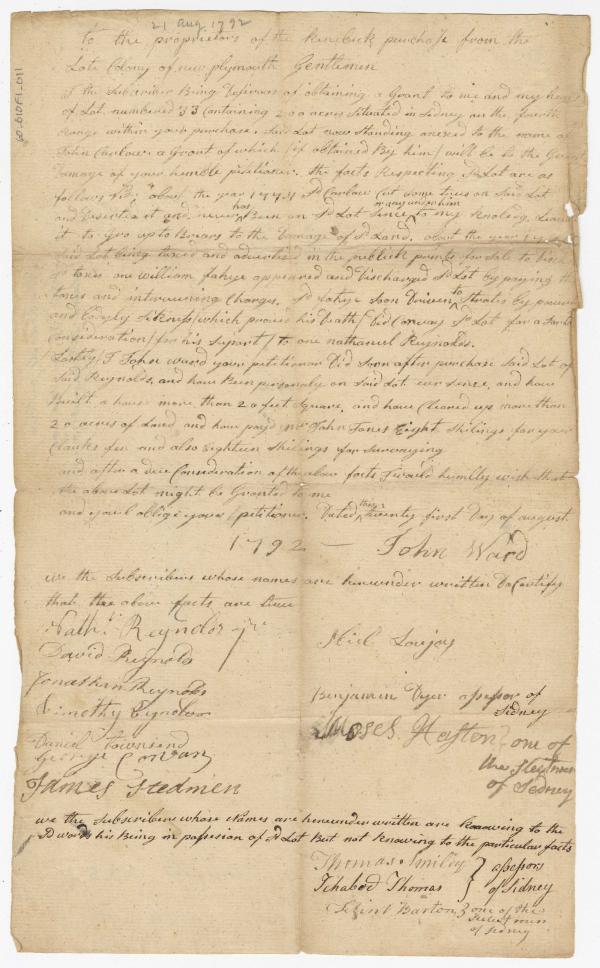 21 Aug 1792
60-010F1-011
to the proprietors of the Kenebeck purchase from the
Late Colony of new plymouth Gentlemen
I the Subscriber Being Desirous of obtaining a Grant to me and my heirs
of Lot numbered 33 Containing 200 acres Situated in Sidney on the fourth
Range within your purchase. Said Lot now Standing anexed to the name of
John Carlow a Grant of which (if obtained By him) will be to the Great
Damage of your humble petitioner. the facts Respecting Sd Lot are as
follows viz. about the year Sd Carlow Cut some trees on Said Lot
and Deserted it and never has Been on Sd Lot Since or any under him to my Knoledg. Leaving
it to Gro up to Buars to the Damage of Sd Land. about the year
Said Lot being taxed and advertised in the publick prints for Sale to
Sd taxes one william fahye appeared and Discharged Sd Lot by paying the
taxes and interveening Charges. Sd fahye Soon Driven to Straits by
and Sikness (which proved his Death) Did Convay Sd Lot for a
Consideration (for his Suport) to one nathanel Reynolds.
Lastly I John ward your petitioner Did Soon after purchase Said Lot of
Said Reynolds. and have Been personaly on Said Lot ever Since. and have
Built a house more than 20 feet Square. and have Cleared up more than
20 acres of Land and have payd mr John Jones Eight Shilings for your
Clarks fee and also Eighteen Shilings for Surveying
and after a due Consideration of the above facts I would humbly wish that
the above Lot might be Granted to me
and youl oblige your petitioner. Dated this twenty first Day of august.
1792 — John Ward
we the Subscribers whose names are hereunder written Do Certify
that the above facts are true
Nathl Reynolds jr
Abiel Lovejoy
David Reynolds
Jonathan Reynolds
Benjamin Dyer assessor of
Sidney
Timothy Reynolds
Moses Haston one of
the Selectmen
of Sedney
Daniel Townsend
George
James Stedmen
we the Subscribers whose Names are hereunder written are knowing to the
Sd words his Being in possesion of Sd Lot But not knowing to the particular facts
Thomas Smiley } assessors
Ichabod Thomas } of Sidney
Flint Barton } one of the
Select men
of Sidney